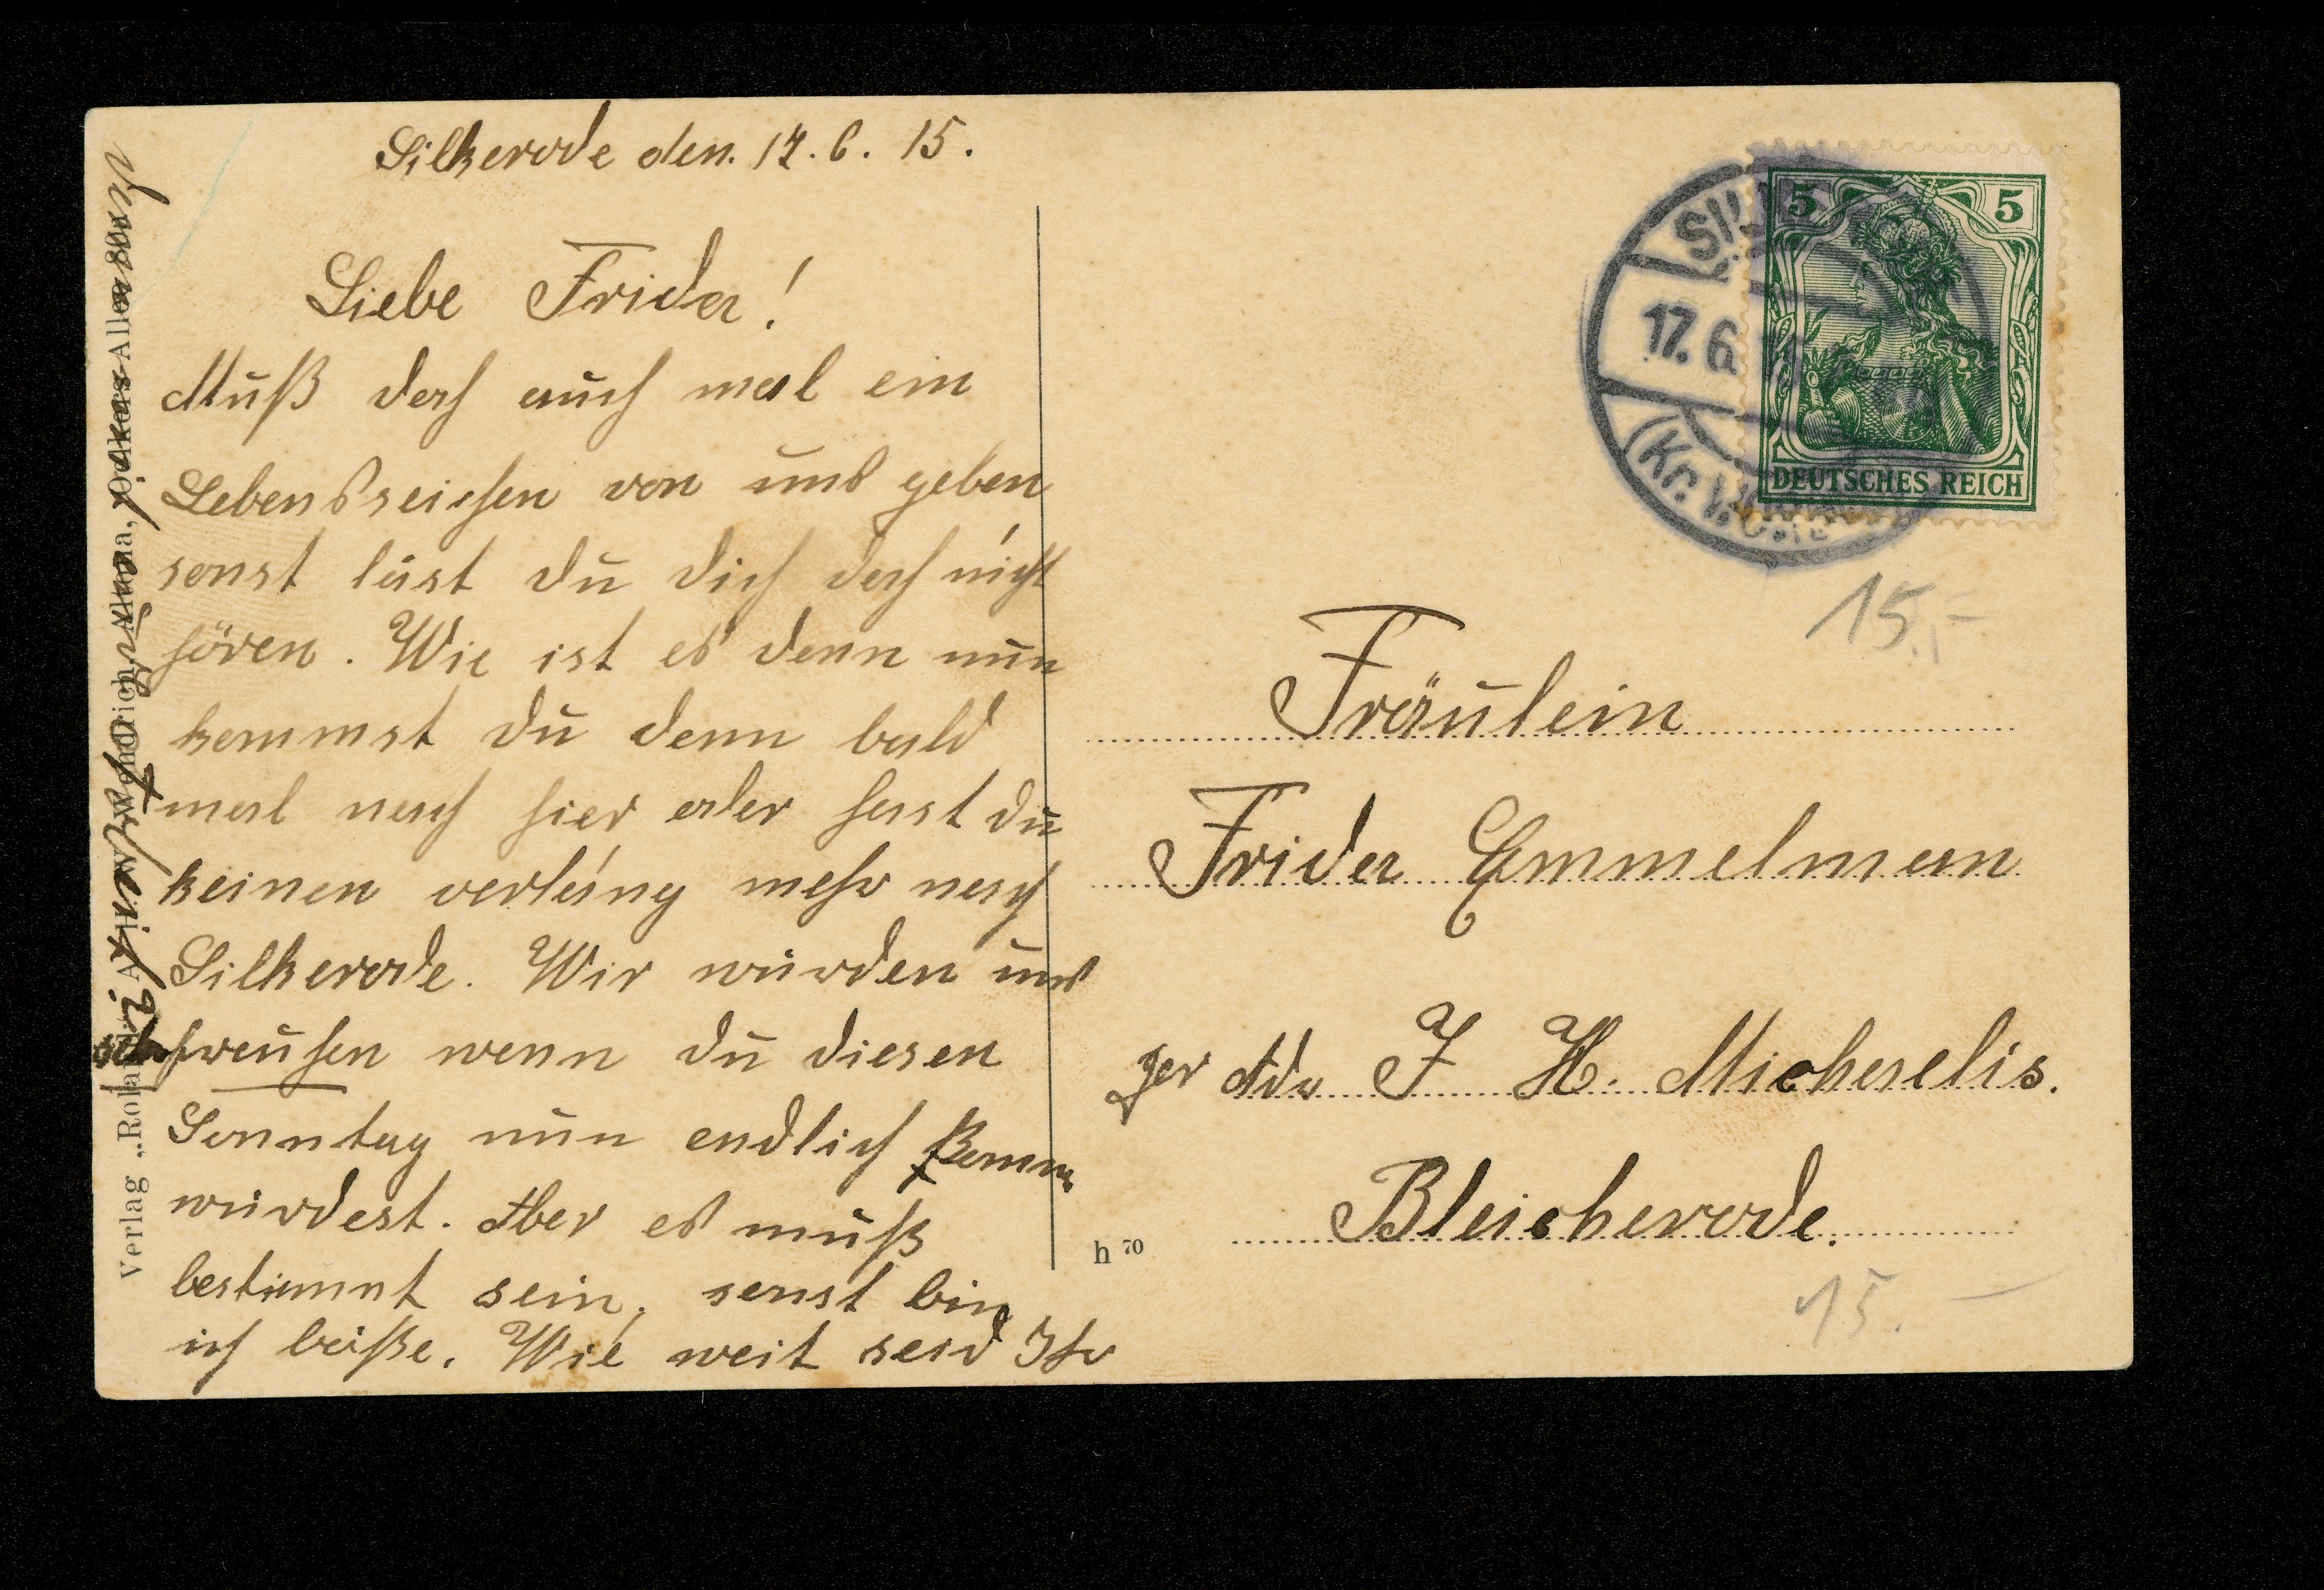 Silkerode den. 17. 6. 15.
Liebe Frida!
Muß doch auch mal ein
Lebenszeichen von uns geben
sonst läst du dich doch nicht
hören. Wie ist es denn nun
kommst du denn bald
mal nach hier oder hast du
keinen verlang mehr nach
Silkerode. Wir würden uns
freuhen wenn du diesen
Sonntag nun endlich komm
würdest. Aber es muß
bestimmt sein, sonst bin
ich böße. Wie weit seid Ihr
Verlag
17. 6.
5 5
DEUTSCHES REICH
15,-
Fräulein
Frida Emmelman
per Adr J H. Michaelis.
Bleicherode.
h 70
15.-